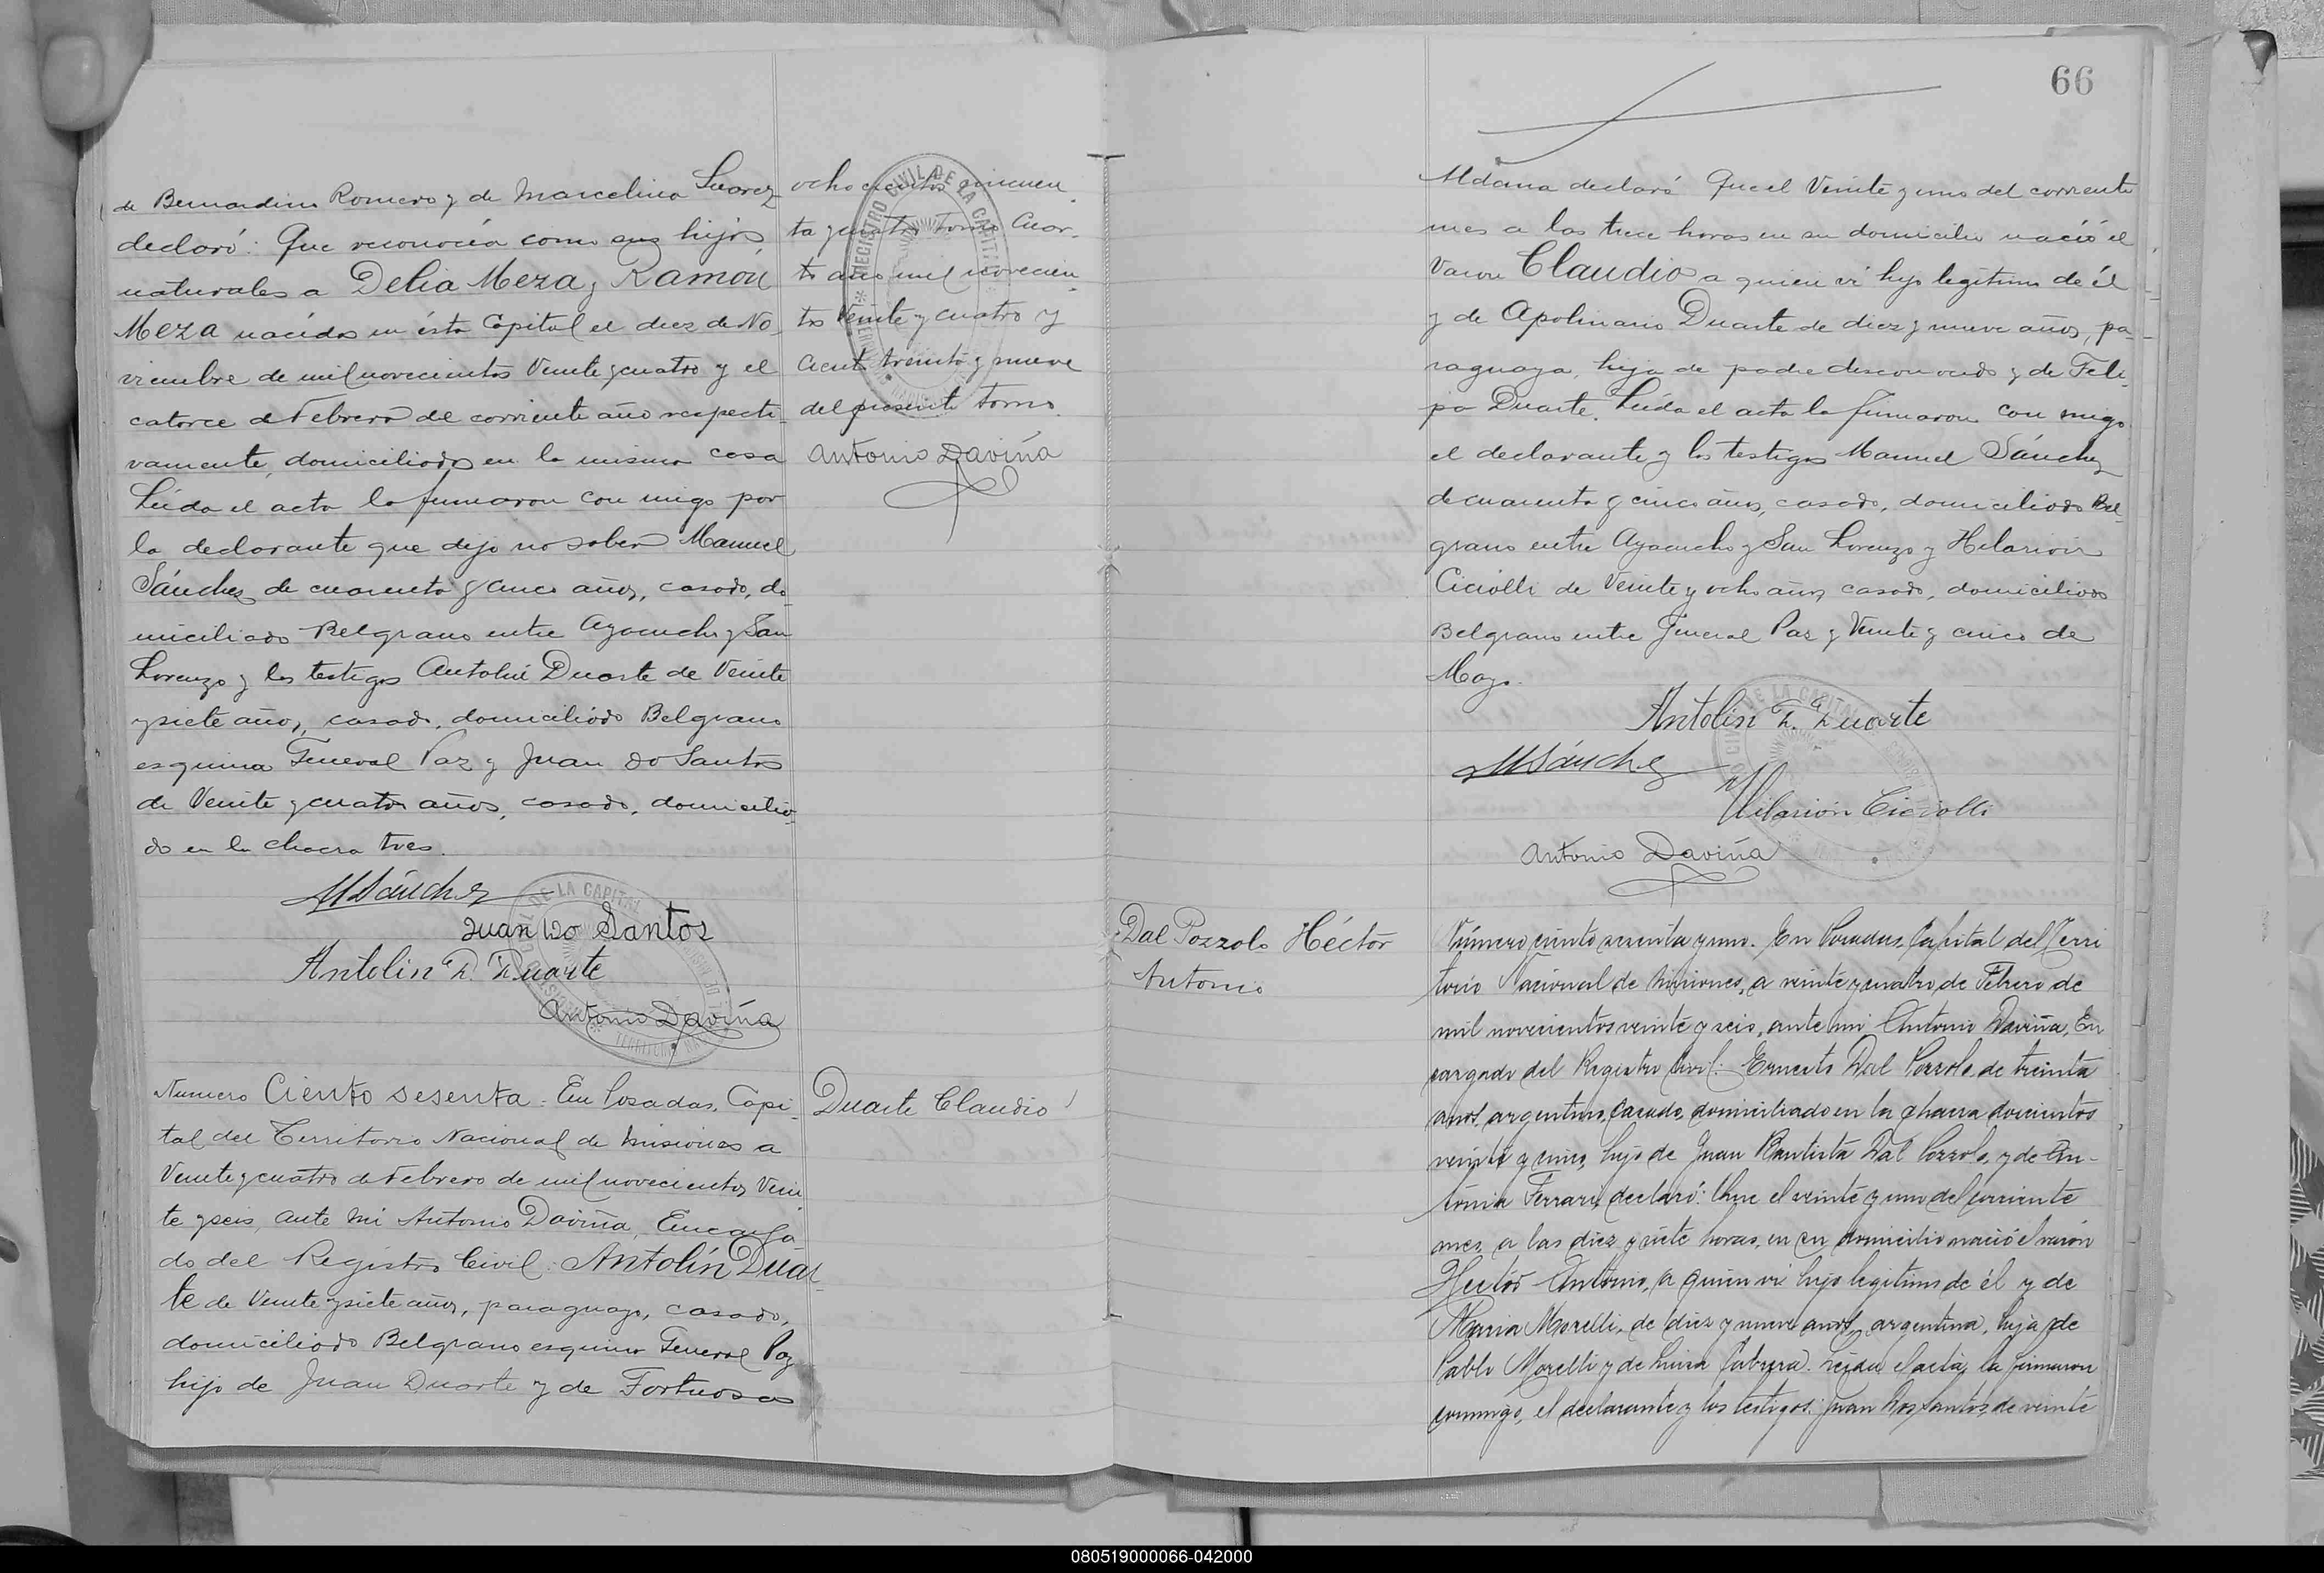 de Bernardino Romero y de Marcelina Suarez
declaró: Que reconocia como sus hijos
naturales a Delia Meza y Ramón
Meza nacidos en ésta Capital el diez de No
viembre de mil novecientos Veinte y cuatro y el
catorce de Febrero del corriente año respecti
vamente, domiciliados en la misma casa
Leida el acta la firmaron con migo por
la declarante que dijo no saber Manuel
Sánchez de cuarenta y cinco años, casado, do
miciliado Belgrano entre Ayacucho y San
Lorenzo y los testigos Antolin Duarte de Veinte
y siete años, casado, domiciliado Belgrano
esquina General Paz y Juan do Santos
de Veinte y cuatro años, casado, domicilia
do en la chacra tres.
MSánchez
Juan Do Santos
Antolin D. Duarte
Antonio Daviña
Numero Ciento sesenta: En Posadas, Capi
tal del Territorio Nacional de Misiones a
Veinte y cuatro de Febrero de mil novecientos Vein
te y seis, ante mi Antonio Daviña, Encarga
do del Registro Civil: Antolín Duar
te de Veinte y siete años, paraguayo, casado,
domiciliado Belgrano esquina General Paz
hijo de Juan Duarte y de Fortuosa
ochocientos cincuen
ta y cuatro tomo Cuar
to año mil novecien
tos Veinte y cuatro y
ciento treinta y nueve
del presente tomo.
Antonio Daviña
Duarte Claudio
66
Aldana declaró Que el Veinte y uno del corriente
mes a las trece horas en su domicilio nació el
Varon Claudio a quien vi hijo legitimo de él
y de Apolinaria Duarte de diez y nueve años, pa
raguaya, hija de padre desconocido y de Feli
pa Duarte. Leida el acta la firmaron con migo
el declarante y los testigos Manuel Sánchez
de cuarenta y cinco años, casado, domiciliado Bel
grano entre Ayacucho y San Lorenzo y Hilarion
Ciciolli de Veinte y ocho años casado, domiciliado
Belgrano entre General Paz y Veinte y cinco de
Mayo.
Antolin D. Duarte
MSánchez
Hilarión Ciciolli
Antonio Daviña
Dal Pozzolo Héctor
Antonio
Número ciento sesenta y uno. En Posadas, Capital del Terri
torio Nacional de Misiones, a veinte y cuatro de Febrero de
mil novecientos veinte y seis, ante mi Antonio Daviña, En
cargado del Registro Civil: Ernesto Dal Pozzolo, de treinta
años, argentino, casado, domiciliado en la chacra doscientos
veinte y cinco, hijo de Juan Bautista Dal Pozzolo, y de An-
tonia Ferrari, declaró: Que el veinte y uno del corriente
mes, a las diez y siete horas, en su domicilio nació el varón
Hector Antonio, a quien vi hijo legitimo de él y de
Maria Morelli, de diez y nueve años, argentina, hija de
Pablo Morelli y de Luisa Cabrera. Leida el acta, la firmaron
conmigo, el declarante y los testigos: Juan Dos Santos, de veinte
080519000066-042000